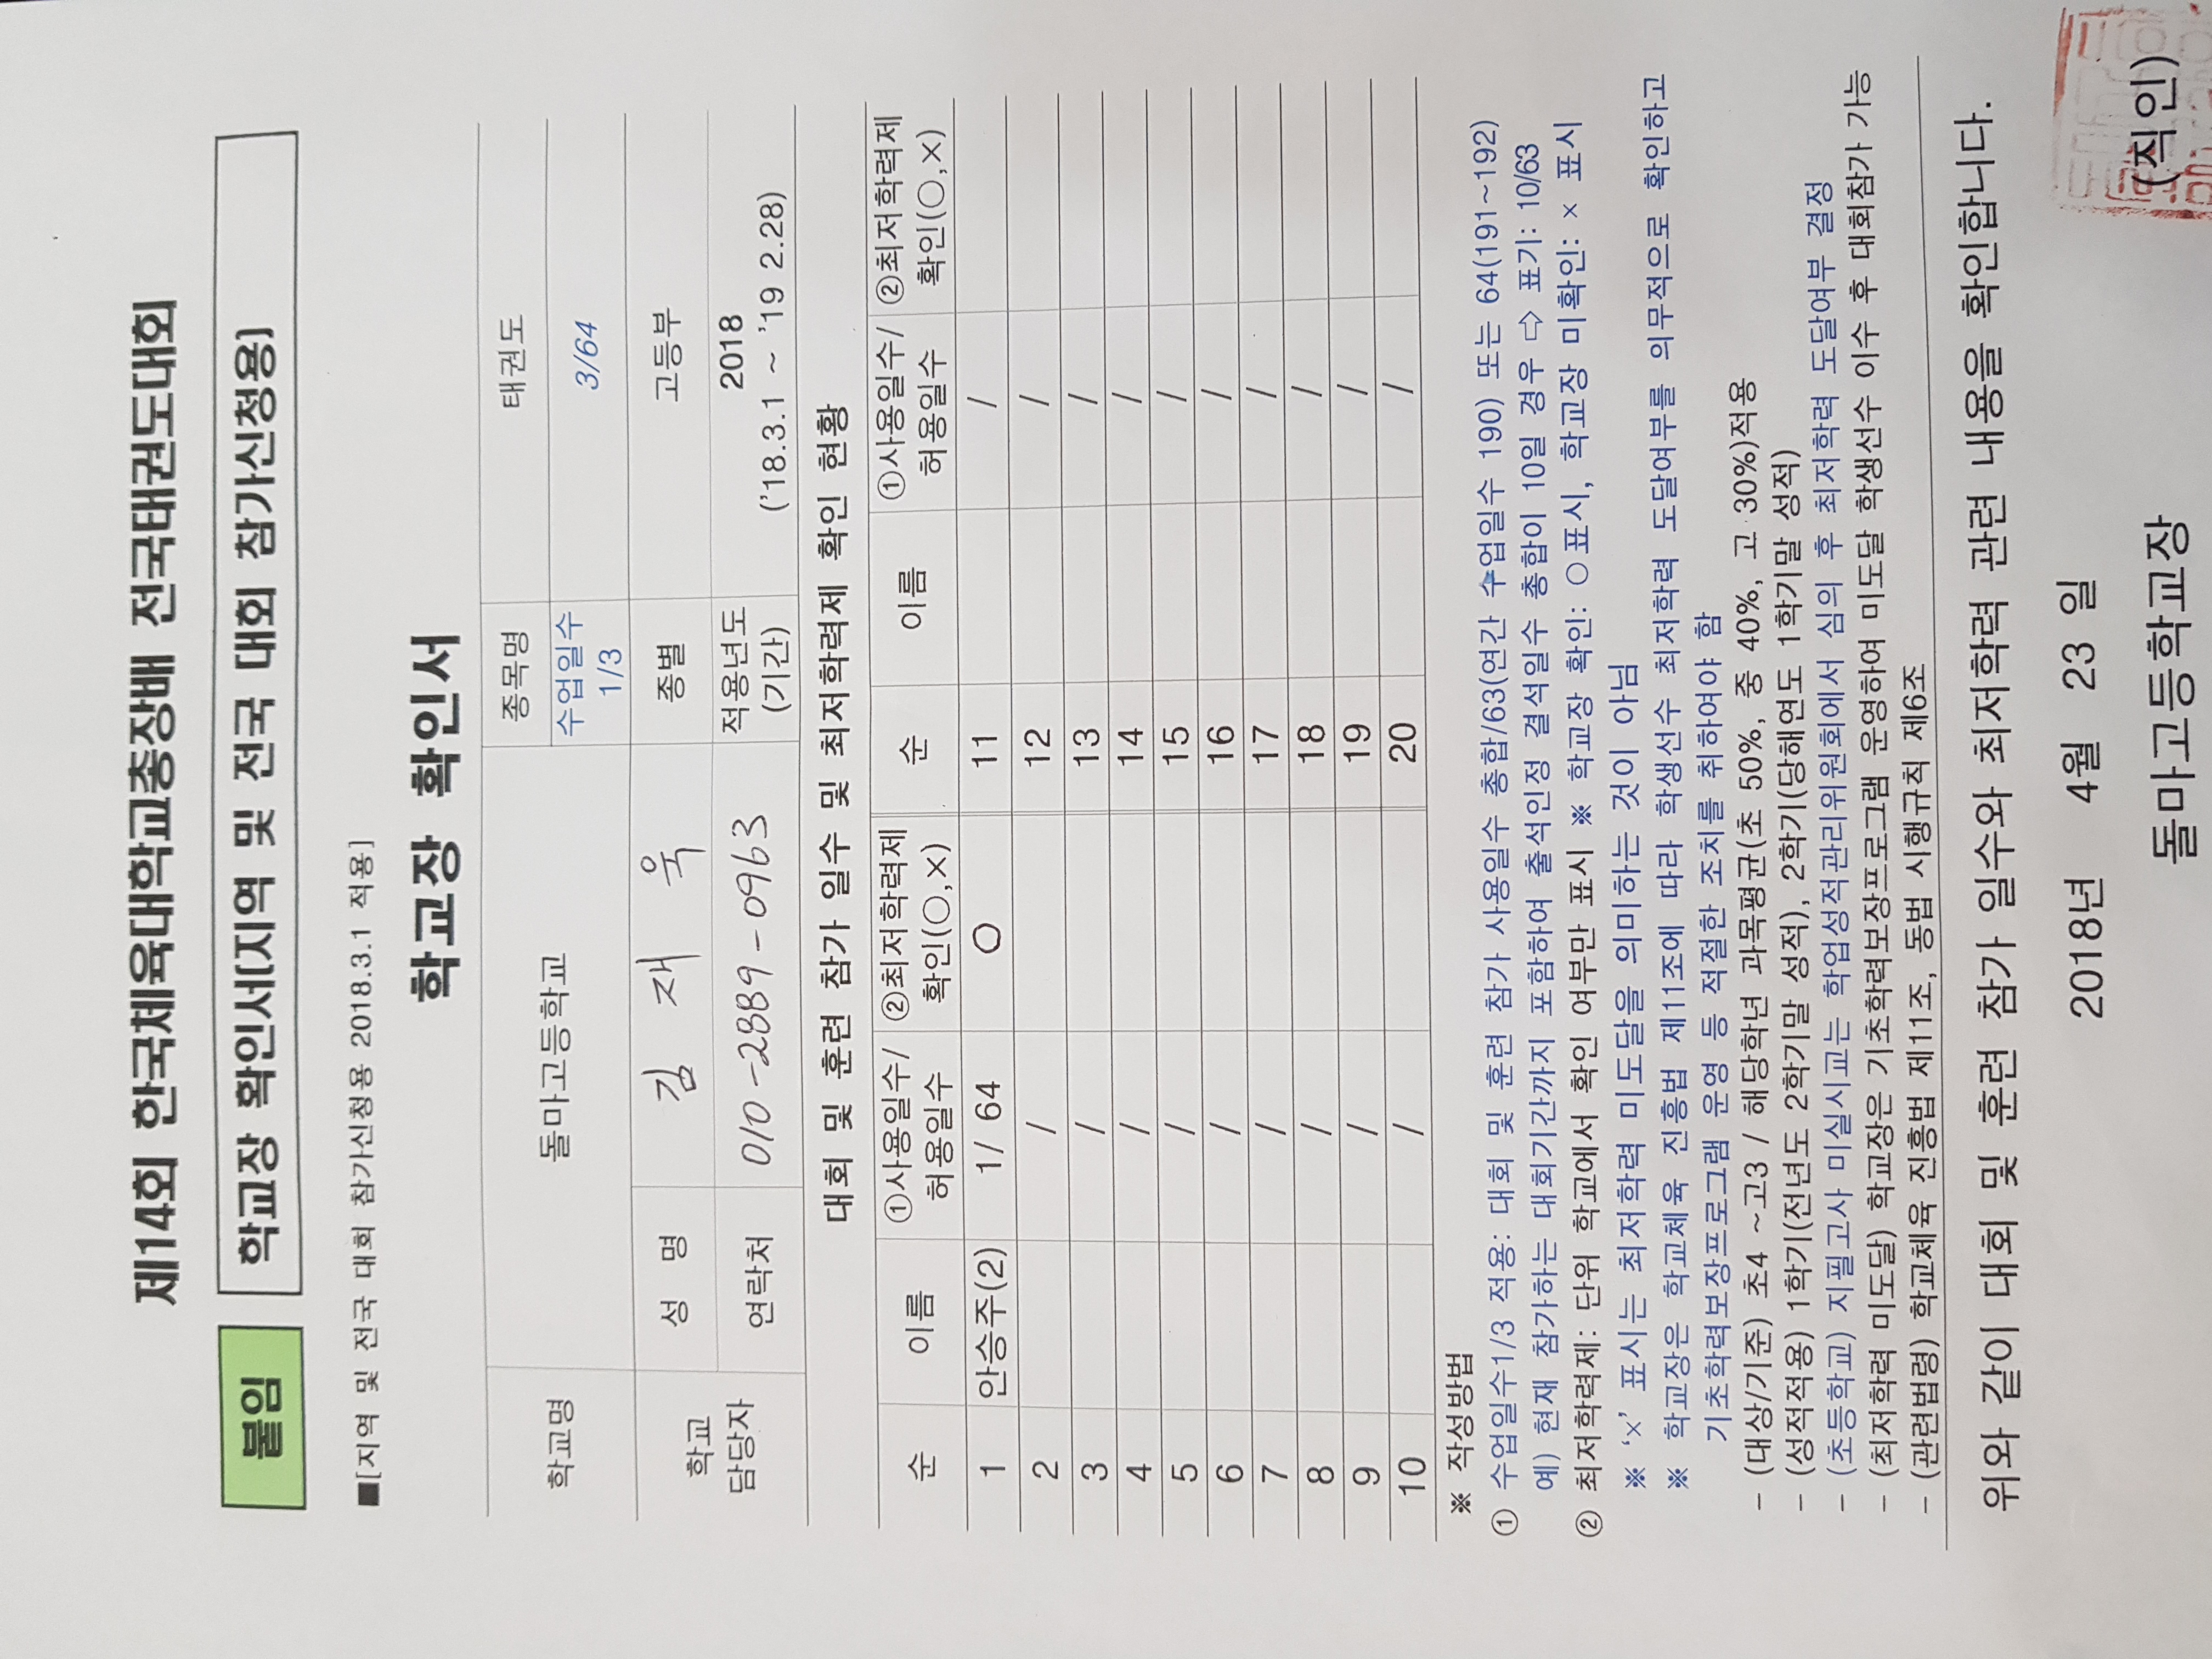 제14회 한국체육대학교총장배 전국태권도대회
붙임 학교장 확인서(지역 및 전국 대회 참가신청용)
■[지역 및 전국 대회 참가신청용 2018.3.1 적용]
학교장 확인서
학교명 돌마고등학교 종목명 태권도
수업일수 1/3 3/64
학교 담당자 성 명 김 재 욱 종별 고등부
연락처 010-2889-0963 적용년도 (기간) 2018 ('18.3.1 ~ '19 2.28)
대회 및 훈련 참가 일수 및 최저학력제 확인 현황
순 이름 ①사용일수/허용일수 ②최저학력제 확인(○,×) 순 이름 ①사용일수/허용일수 ②최저학력제 확인(○,×)
1 안승주(2) 1/ 64 ○ 11 /
2 / 12 /
3 / 13 /
4 / 14 /
5 / 15 /
6 / 16 /
7 / 17 /
8 / 18 /
9 / 19 /
10 / 20 /
※ 작성방법
① 수업일수1/3 적용: 대회 및 훈련 참가 사용일수 총합/63(연간 수업일수 190) 또는 64(191~192)
예) 현재 참가하는 대회기간까지 포함하여 출석인정 결석일수 총합이 10일 경우 ⇨ 표기: 10/63
② 최저학력제: 단위 학교에서 확인 여부만 표시 ※ 학교장 확인: ○표시, 학교장 미확인: × 표시
※ '×' 표시는 최저학력 미도달을 의미하는 것이 아님
※ 학교장은 학교체육 진흥법 제11조에 따라 학생선수 최저학력 도달여부를 의무적으로 확인하고
기초학력보장프로그램 운영 등 적절한 조치를 취하여야 함
- (대상/기준) 초4 ~고3 / 해당학년 과목평균(초 50%, 중 40%, 고 30%)적용
- (성적적용) 1학기(전년도 2학기말 성적), 2학기(당해연도 1학기말 성적)
- (초등학교) 지필고사 미실시교는 학업성적관리위원회에서 심의 후 최저학력 도달여부 결정
- (최저학력 미도달) 학교장은 기초학력보장프로그램 운영하여 미도달 학생선수 이수 후 대회참가 가능
- (관련법령) 학교체육 진흥법 제11조, 동법 시행규칙 제6조
위와 같이 대회 및 훈련 참가 일수와 최저학력 관련 내용을 확인합니다.
2018년 4월 23 일
돌마고등학교장 (직인)